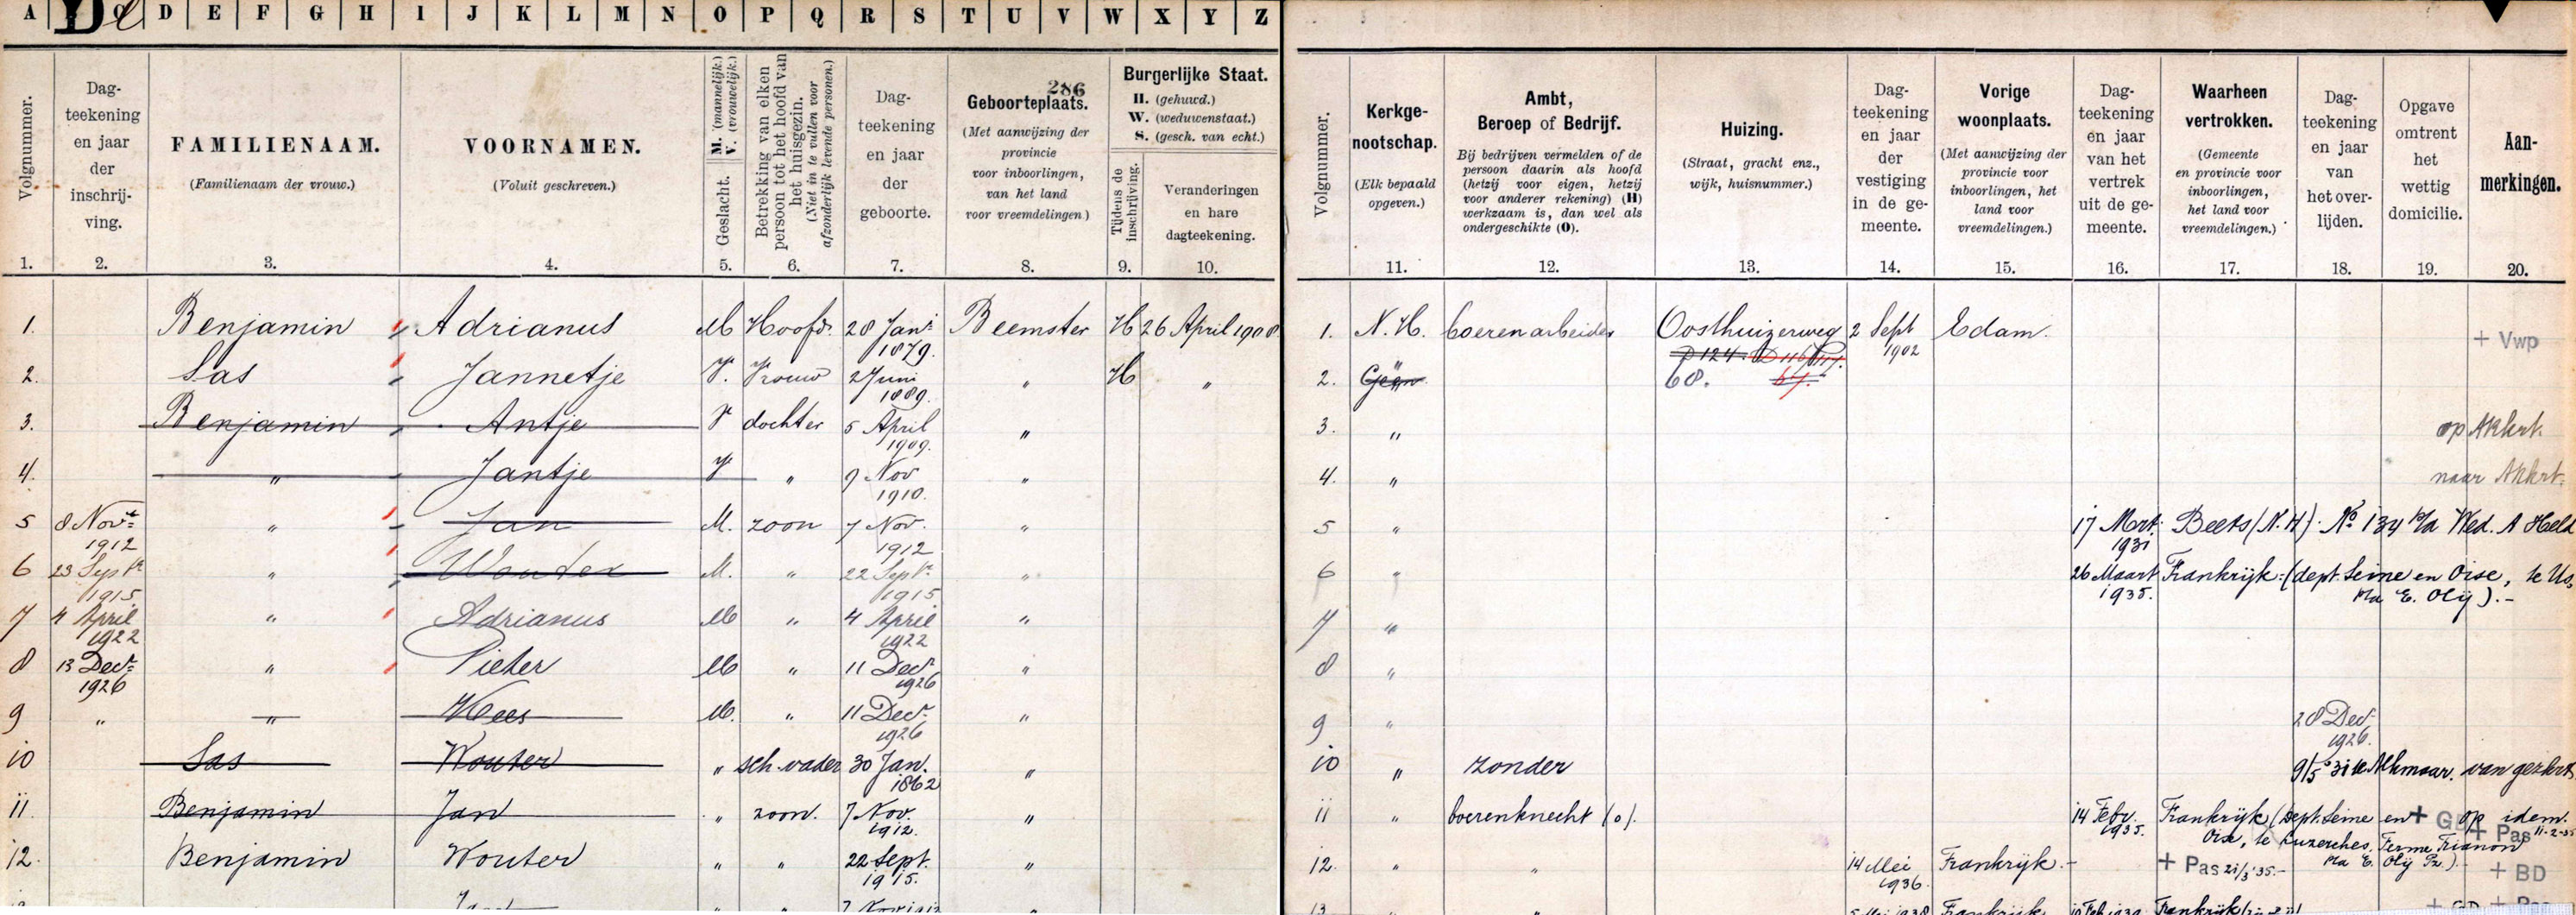 A B C D E F G H I J K L M N O P Q R S T U V W X Y Z
De
286
Volgnummer.
Dag-
teekening
en jaar
der
inschrij-
ving.
FAMILIENAAM.
(Familienaam der vrouw.)
VOORNAMEN.
(Voluit geschreven.)
Geslacht. M. (mannelijk.)
V. (vrouwelijk.)
Betrekking van elken
persoon tot het hoofd van
het huisgezin.
(Niet in te vullen voor
afzonderlijk levende personen.)
Dag-
teekening
en jaar
der
geboorte.
Geboorteplaats.
(Met aanwijzing der
provincie
voor inboorlingen,
van het land
voor vreemdelingen)
Burgerlijke Staat.
H. (gehuwd.)
W. (weduwenstaat.)
S. (gesch. van echt.)
Tijdens de
inschrijving.
Veranderingen
en hare
dagteekening.
1. 2. 3. 4. 5. 6. 7. 8. 9. 10.
1. Benjamin Adrianus M Hoofd. 28 Jan. 1879. Beemster H 26 April 1908.
2. Sas Jannetje V. Vrouw 2 Juni 1889. " H "
3. Benjamin Antje V dochter 5 April 1909. "
4. " Jantje V " 9 Nov 1910. "
5 8 Nov. 1912 " Jan M. zoon 7 Nov. 1912 "
6 23 Sept. 1915 " Wouter M. " 22 Sept. 1915 "
7 4 April 1922 " Adrianus M " 4 April 1922 "
8 13 Dec. 1926 " Pieter M " 11 Dec. 1926 "
9 " " Kees M. " 11 Dec. 1926 "
10 Sas Wouter " sch. vader 30 Jan. 1862 "
11. Benjamin Jan " zoon. 7 Nov. 1912. "
12. Benjamin Wouter " " 22 Sept. 1915. "
Volgnummer.
Kerkge-
nootschap.
(Elk bepaald
opgeven.)
Ambt,
Beroep of Bedrijf.
Bij bedrijven vermelden of de
persoon daarin als hoofd
(hetzij voor eigen, hetzij
voor anderer rekening) (H)
werkzaam is, dan wel als
ondergeschikte (O).
Huizing.
(Straat, gracht enz.,
wijk, huisnummer.)
Dag-
teekening
en jaar
der
vestiging
in de ge-
meente.
Vorige
woonplaats.
(Met aanwijzing der
provincie voor
inboorlingen, het
land voor
vreemdelingen.)
Dag-
teekening
en jaar
van het
vertrek
uit de ge-
meente.
Waarheen
vertrokken.
(Gemeente
en provincie voor
inboorlingen,
het land voor
vreemdelingen.)
Dag-
teekening
en jaar
van
het over-
lijden.
Opgave
omtrent
het
wettig
domicilie.
Aan-
merkingen.
11. 12. 13. 14. 15. 16. 17. 18. 19. 20.
1. N. H. boerenarbeider Oosthuizerweg 2 Sept 1902 Edam. + Vwp
D 124. D 116
2. Geen 68. 67.
3. " op Akkrt.
4. " naar Akkrt.
5 " 17 Mrt. 1931 Beets (N.H). No 134 p/a Wed. A Held
6 " 26 Maart 1935. Frankrijk (dept. Seine en Oise, te Us,
p/a E. Olij).-
7 "
8 "
9 " 28 Dec. 1926.
10 " zonder 9/5 '31 te Alkmaar. van gezkrt
11 " boerenknecht (o). 14 Febr. 1935. Frankrijk (dept. Seine en + op idem.
Oise, te Luzerches. Ferme Trianon + Pas 11-2-35
p/a E. Olij Pz.)
12. " " 14 Mei 1936. Frankrijk.- + Pas 21/3 '35.- + BD